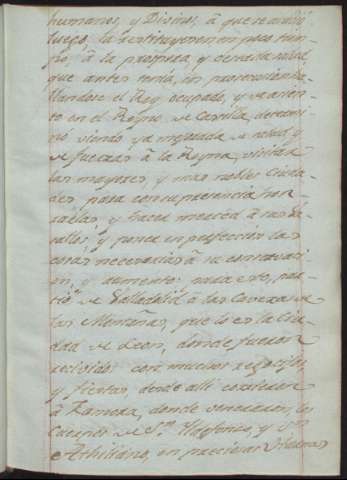 humanos, y Divinos, à que se acudió
luego, la restituyeron en poco tiem-
po, à la prospera, y deseada salud
que antes tenia, en proseccion ha-
llandose el Rey ocupado, y de asien-
to en el Reyno de Castilla, determi-
nó viendo ya mejorada de salud, y
de fuerzas à la Reyna, visitar
las mayores, y mas nobles Ciuda-
des, para con su presencia hon-
rarlas, y hacer merced à sus Va-
sallos, y poner en perfeccion las
cosas necesarias à su conservaci-
on, y aumento: para esto, par-
tió de Valladolid à la Cabeza de
las Montañas, que lo es la Ciu-
dad de Leon, donde fueron
recividos con muchos regocijos,
y fiestas, desde alli
à Zamora, donde veneraron, los
Cuerpos de Sn. Ildefonso, y Sn
Athilano, en preciosas Urnas